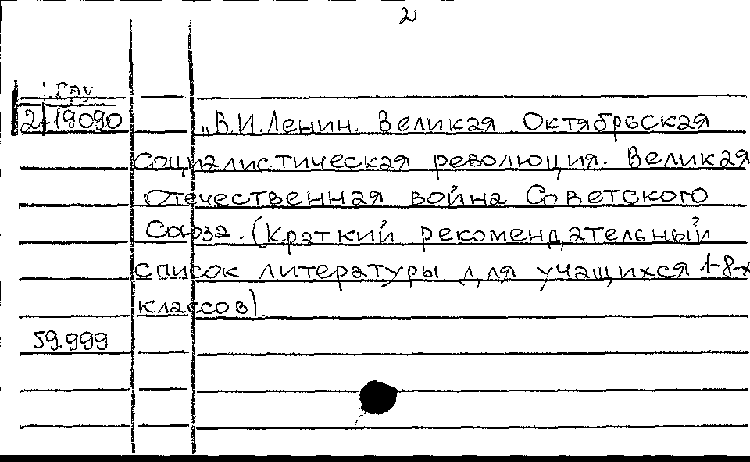 2
2 19090 „В.И.Ленин. Великая Октябрьская
социалистическая революция. Великая
Отечественная война Советского
Союза. (Краткий рекомендательный
список литературы для учащихся 1-8-х
классов)
59.999